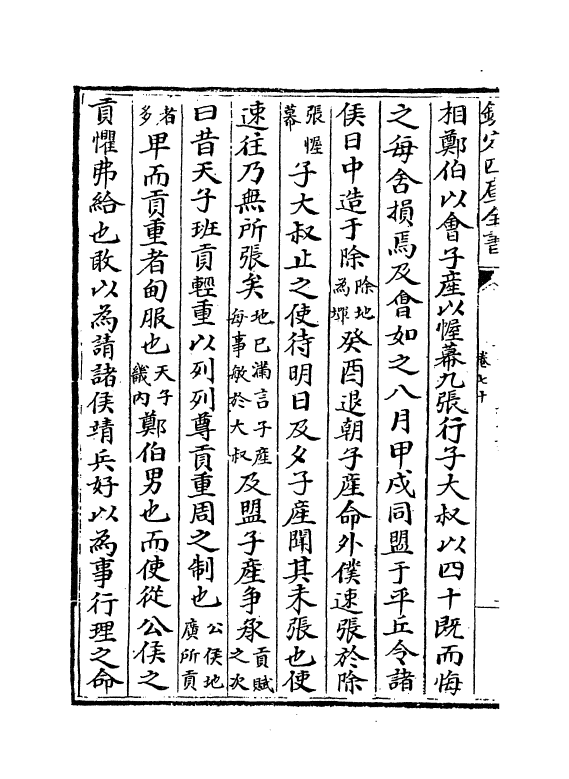 欽定四庫全書
卷七十
相鄭伯以會子產以幄幕九張行子大叔以四十既而悔
之每舍損焉及會如之八月甲戌同盟于平丘令諸
侯日中造于除除地為墠癸酉退朝子產命外僕速張於除
張幄幕子大叔止之使待明日及夕子產聞其未張也使
速往乃無所張矣地已滿言子產每事敏於大叔及盟子產爭承貢賦之次
曰昔天子班貢輕重以列列尊貢重周之制也公侯地廣所貢
者多卑而貢重者甸服也天子畿內鄭伯男也而使從公侯之
貢懼弗給也敢以為請諸侯靖兵好以為事行理之命